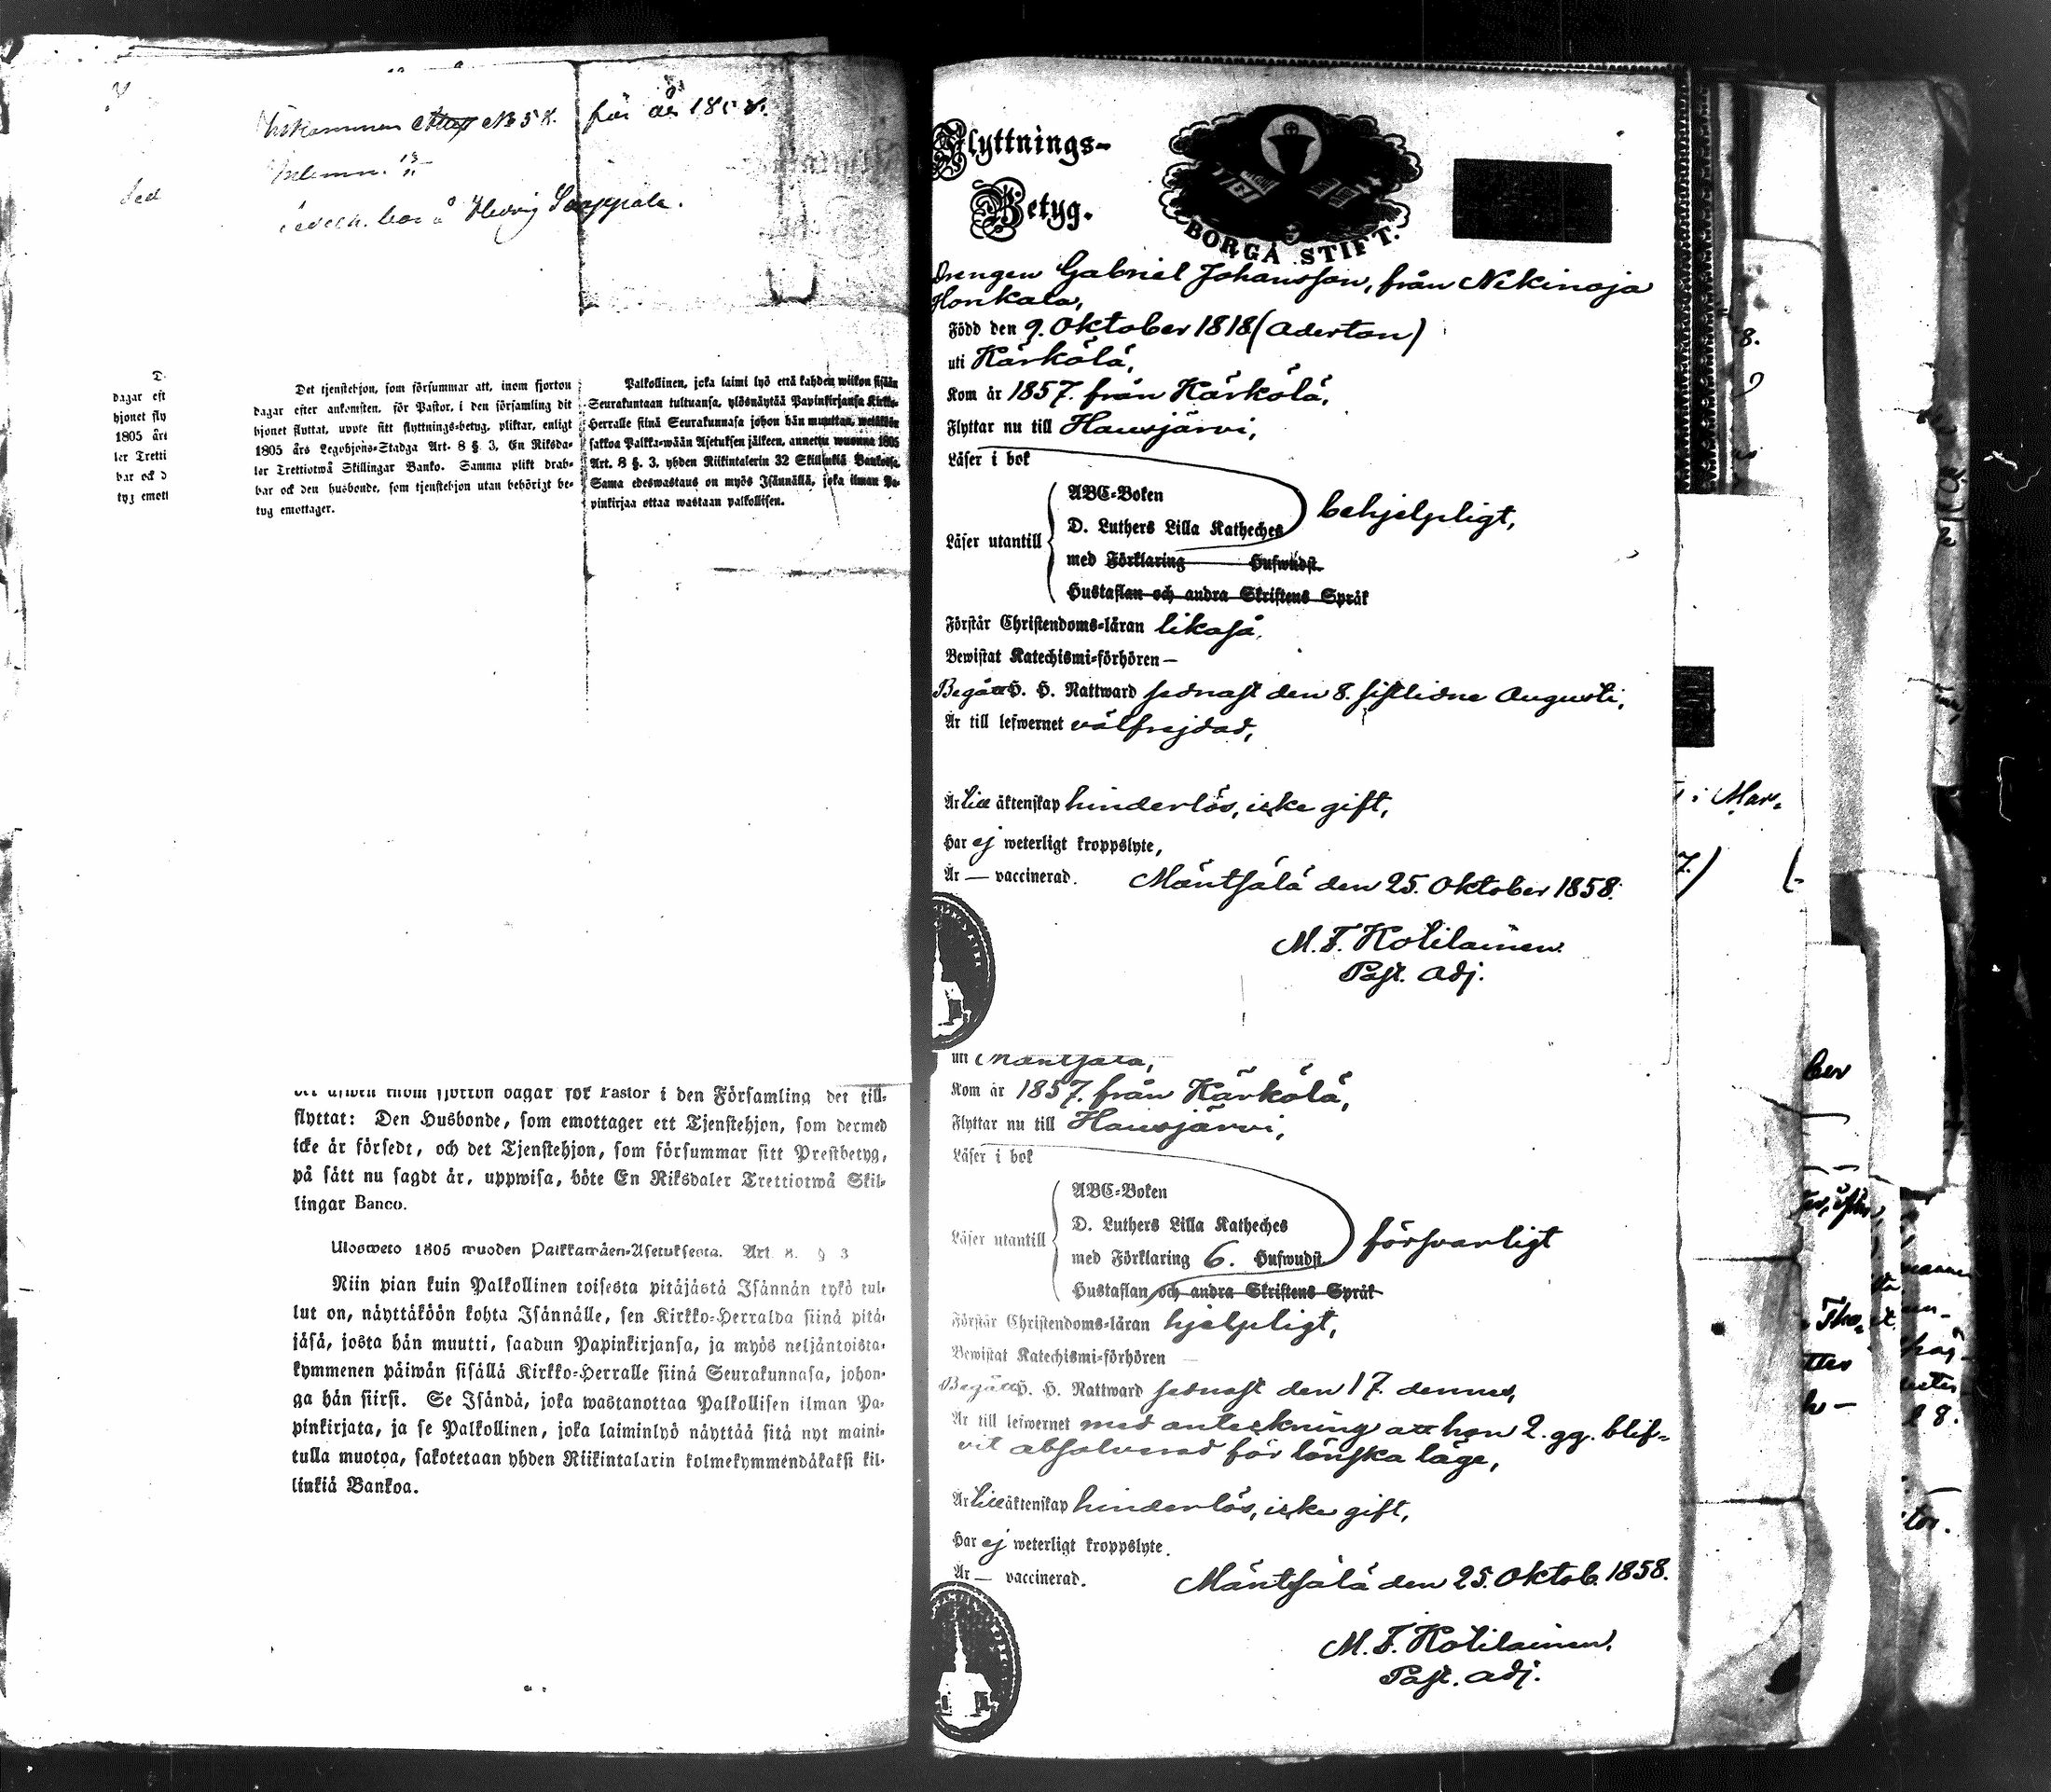 för år 185
Inlemn.
å Hedvig Seppälä.
Det tjenstehjon, som försummar att, inom fjorton
dagar efter ankomsten, för Pastor, i den församling dit
hjonet flyttat, uppte sitt flyttnings-betyg, pliktar, enligt
1805 års Legohjons-Stadga Art. 8 §. 3, En Riksda-
ler Trettiotwå Skillingar Banko. Samma plikt drab-
bar ock den husbonde, som tjenstehjon utan behörigt be-
tyg emottager.
Palkollinen, joka laimi lyö että kahden wiikon sisään
Seurakuntaan tultuansa, ylösnäytää Papinkirjansa Kirkko-
Herralle siinä Seurakunnasa johon hän muuttaa, wetäköön
sakkoa Palkka-wään Asetuksen jälkeen, annettu wuonna 1805
Art. 8 §. 3, yhden Riikintalerin 32 Skillinkiä Bankossa.
Sama edeswastaus on myös Isännällä, joka ilman Pa-
pinkirjaa ottaa wastaan palkollisen.
D.
dagar eft
hjonet fly
1805 års
ler Tretti
bar ock d
tyg emott
flyttat: Den Husbonde, som emottager ett Tjenstehjon, som dermed
icke är försedt, och det Tjenstehjon, som försummar sitt Prestbetyg,
på sätt nu sagdt är, uppwisa, böte En Riksdaler Trettiotwå Skil-
lingar Banco.
Ulosweto 1805 wuoden Palkkawäen-Asetuksesta. Art. 8. § 3
Niin pian kuin Palkollinen toisesta pitäjästä Isännän tykö tul-
lut on, näyttäköön kohta Isännälle, sen Kirkko-Herralda siinä pitä-
jäsä, josta hän muutti, saadun Papinkirjansa, ja myös neljäntoista-
kymmenen päiwän sisällä Kirkko-Herralle siinä Seurakunnasa, johon-
ga hän siirsi. Se Isändä, joka wastanottaa Palkollisen ilman Pa-
pinkirjata, ja se Palkollinen, joka laiminlyö näyttää sitä nyt maini-
tulla muotoa, sakotetaan yhden Riikintalarin kolmekymmendäkaksi kil-
linkiä Bankoa.
Flyttnings-
Betyg.
BORGÅ STIFT.
Drengen Gabriel Johansson, från Nikinoja
Honkala,
Född den 9. Oktober 1818 (Aderton)
uti Kärkölä,
Kom år 1857. från Kärkölä,
Flyttar nu till Hausjärvi,
Läser i bok
Läser utantill
ABC-Boken
D. Luthers Lilla Katheches
med Förklaring Hufwudst.
Hustaflan och andra Skriftens Språk
behjelpligt,
Förstår Christendoms-läran likaså,
Bewistat Katechismi-förhören —
Begått H. H. Nattward sednast den 8. sistlidne Augusti,
Är till lefwernet välfrejdad,
Är till äktenskap hinderlös, icke gift,
Har ej weterligt kroppslyte,
Är — vaccinerad.
Mäntsälä den 25. Oktober 1858.
M. F. Kotilainen.
Past. Adj.
uti Mäntsälä,
Kom år 1857. från Kärkölä,
Flyttar nu till Hausjärvi,
Läser i bok
Läser utantill
ABC-Boken
D. Luthers Lilla Katheches
med Förklaring 6. Hufwudst.
Hustaflan och andra Skriftens Språk
försvarligt
Förstår Christendoms-läran hjelpligt,
Bewistat Katechismi-förhören —
Begått H. H. Nattward sednast den 17. dennes,
Är till lefwernet med anteckning att hon 2. gg. blif-
vit absolverad för lönska läge,
Är till äktenskap hinderlös, icke gift,
Har ej weterligt kroppslyte.
Är — vaccinerad.
Mäntsälä den 25. Oktob. 1858.
M. F. Kotilainen,
Past. Adj.
8.
i Mar-
7.)
ber
ttes
18.